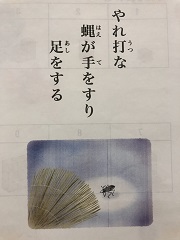 やれ打な
蝿が手をすり
足をする